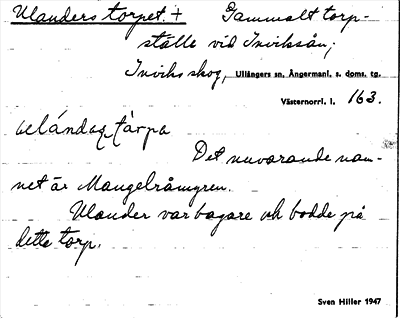 Ulanders torpet. + Gammalt torp-
ställe vid Inviksån;
Inviks skog, Ullångers sn. Ångermanl. s. doms. tg.
Västernorrl. l. 163.
tàrpa
Det nuvarande nam-
net är Mangelråmgren.
Ulander var bagare och bodde på
detta torp.
Sven Hiller 1947